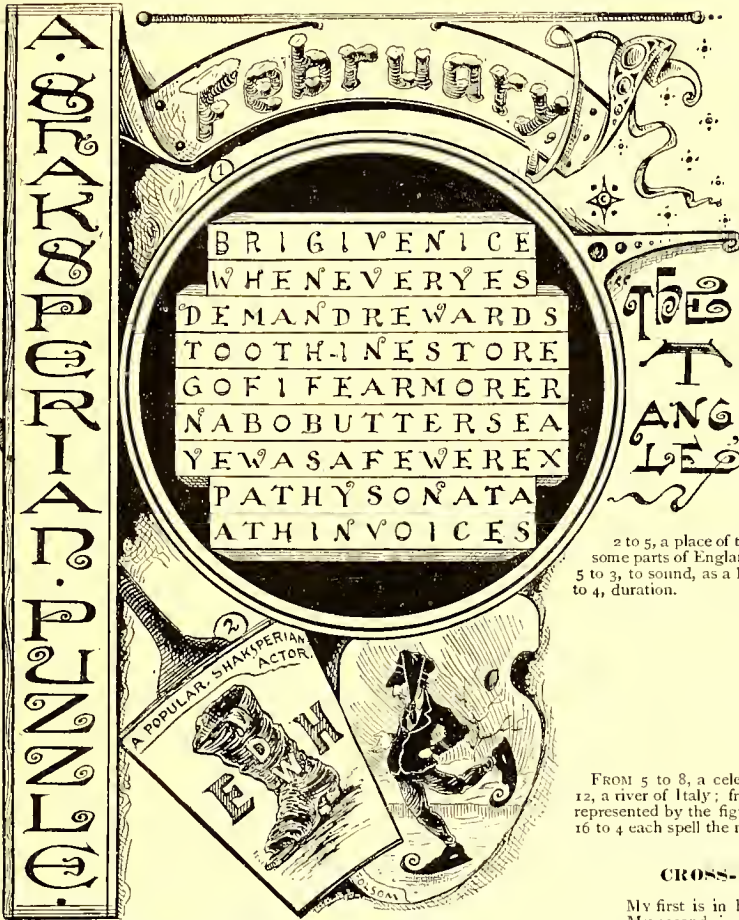 A·SHAKSPERIAN·PUZZLE.
February
1
BRIGIVENICE
WHENEVERYES
DEMANDREWARDS
TOOTH-INESTORE
GOFIFEARMORER
NABOBUTTERSEA
YEWASAFEWEREX
PATHYSONATA
ATHINVOICES
"The
T
ANG
LES
2 to 5, a place of t
some parts of Englan
5 to 3, to sound, as a
to 4, duration.
2
A POPULAR SHAKSPERIAN
ACTOR.
E D W H
FROM 5 to 8, a cele
12, a river of Italy; fr
represented by the fig
16 to 4 each spell the
CROSS-
My first is in